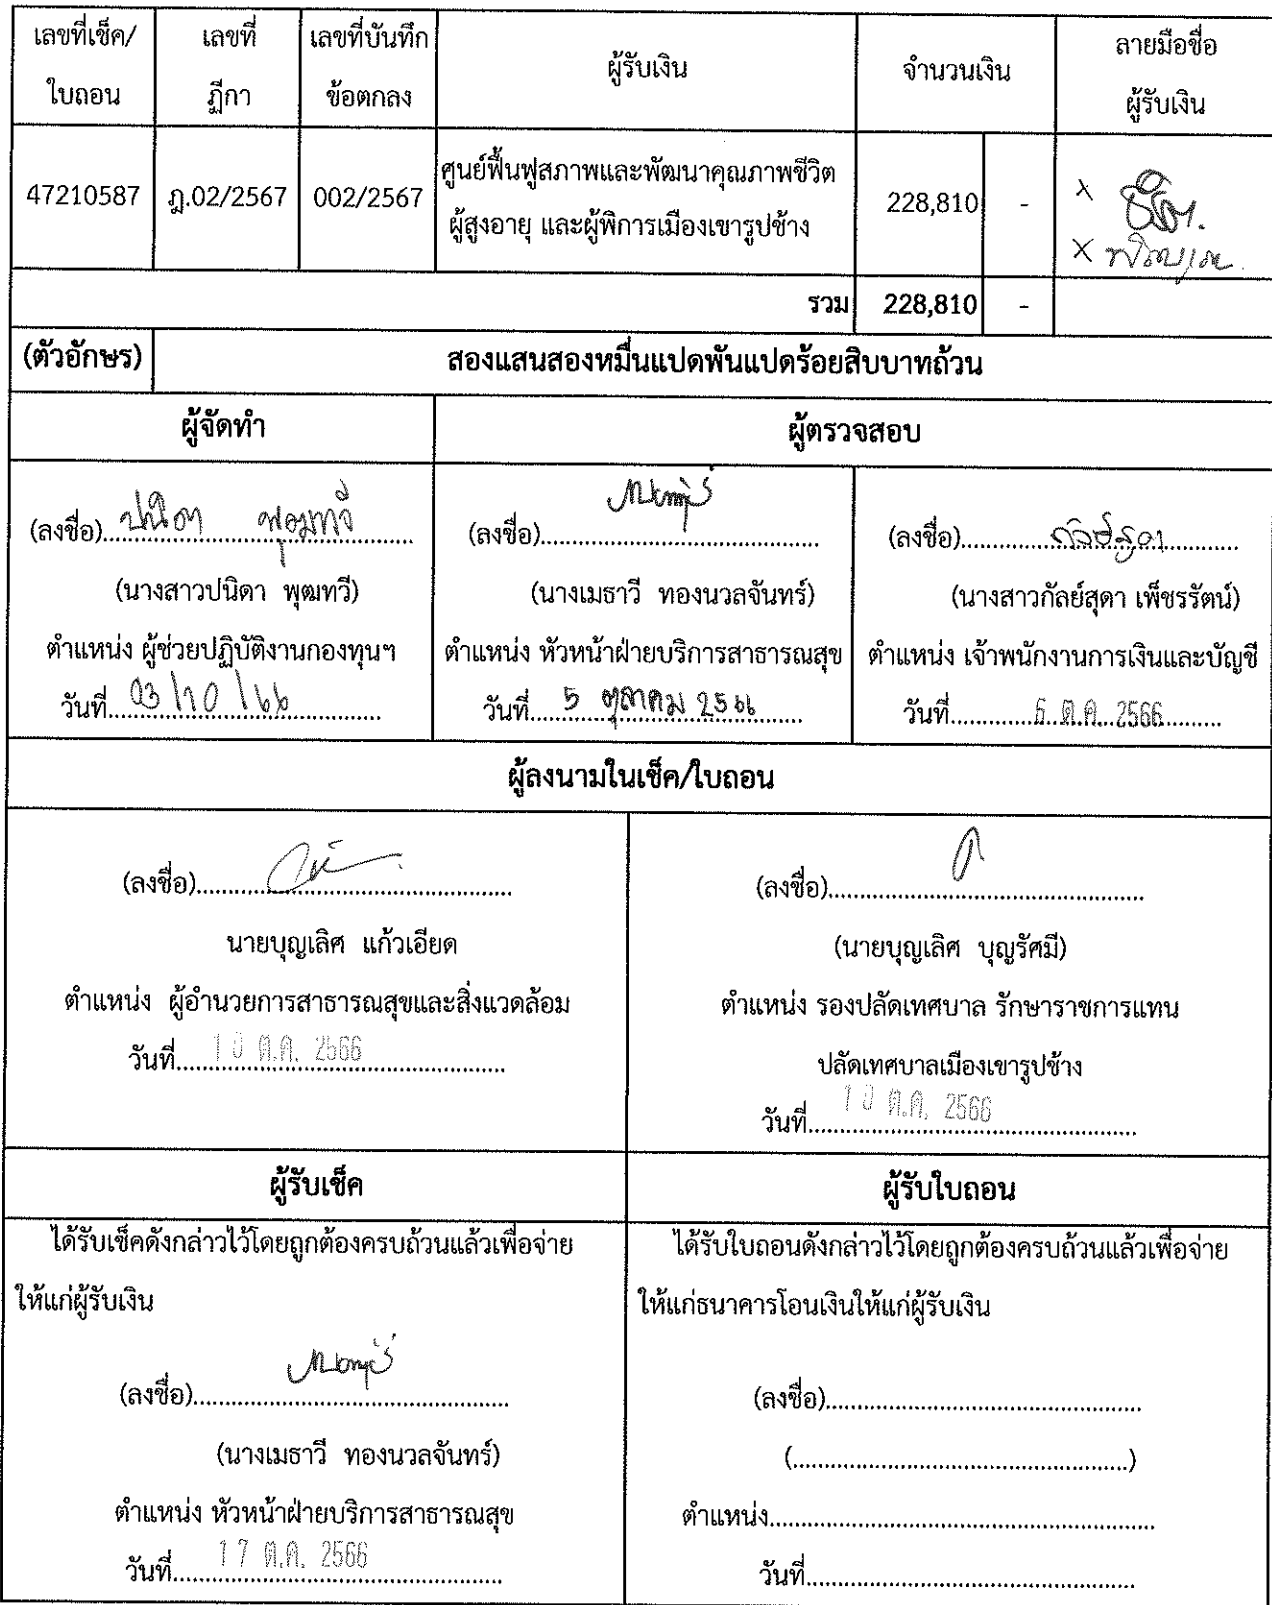 เลขที่เช็ค/ใบถอน เลขที่ฎีกา เลขที่บันทึกข้อตกลง ผู้รับเงิน จำนวนเงิน ลายมือชื่อผู้รับเงิน
47210587 ฎ.02/2567 002/2567 ศูนย์ฟื้นฟูสภาพและพัฒนาคุณภาพชีวิต 228,810 -
ผู้สูงอายุ และผู้พิการเมืองเขารูปช้าง
รวม 228,810 -
(ตัวอักษร) สองแสนสองหมื่นแปดพันแปดร้อยสิบบาทถ้วน
ผู้จัดทำ ผู้ตรวจสอบ
(ลงชื่อ) ปนิดา พุฒทวี
(นางสาวปนิดา พุฒทวี)
ตำแหน่ง ผู้ช่วยปฏิบัติงานกองทุนฯ
วันที่ 03/10/66
(ลงชื่อ)
(นางเมธาวี ทองนวลจันทร์)
ตำแหน่ง หัวหน้าฝ่ายบริการสาธารณสุข
วันที่ 5 ตุลาคม 2566
(ลงชื่อ) กัลย์สุดา
(นางสาวกัลย์สุดา เพ็ชรรัตน์)
ตำแหน่ง เจ้าพนักงานการเงินและบัญชี
วันที่ ต.ค. 2566
ผู้ลงนามในเช็ค/ใบถอน
(ลงชื่อ)
นายบุญเลิศ แก้วเอียด
ตำแหน่ง ผู้อำนวยการสาธารณสุขและสิ่งแวดล้อม
วันที่ 10 ต.ค. 2566
(ลงชื่อ)
(นายบุญเลิศ บุญรัศมี)
ตำแหน่ง รองปลัดเทศบาล รักษาราชการแทน
ปลัดเทศบาลเมืองเขารูปช้าง
วันที่ 10 ต.ค. 2566
ผู้รับเช็ค ผู้รับใบถอน
ได้รับเช็คดังกล่าวไว้โดยถูกต้องครบถ้วนแล้วเพื่อจ่าย
ให้แก่ผู้รับเงิน
(ลงชื่อ)
(นางเมธาวี ทองนวลจันทร์)
ตำแหน่ง หัวหน้าฝ่ายบริการสาธารณสุข
วันที่ 17 ต.ค. 2566
ได้รับใบถอนดังกล่าวไว้โดยถูกต้องครบถ้วนแล้วเพื่อจ่าย
ให้แก่ธนาคารโอนเงินให้แก่ผู้รับเงิน
(ลงชื่อ)
(................................................)
ตำแหน่ง
วันที่